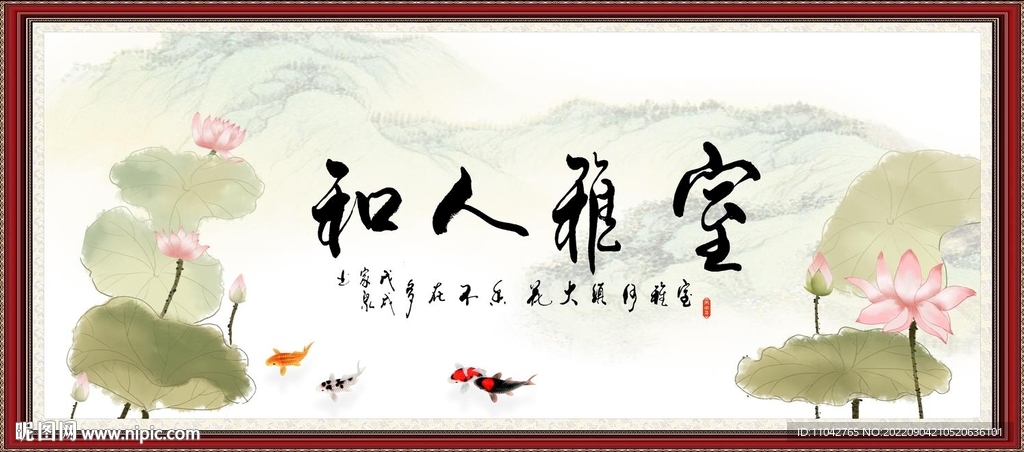 室雅人和
室雅何须大花香不在多
戊戌
家泉
书
昵图网 www.nipic.com
ID:11042765 NO:20220904210520636101